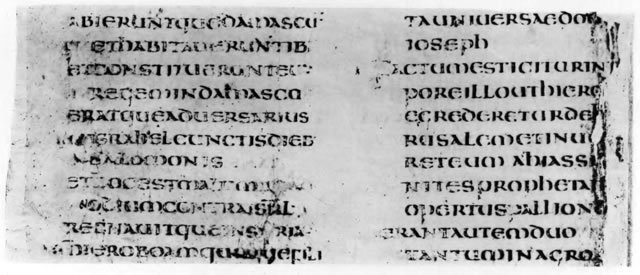 ABIERUNTQUEDAMASCU
ETHABITAUERUNTIB
ETCONSTITUERUNTEU
REGEMINDAMASCO
ERATQUEADUERSARIUS
ISRAHELCUNCTISDIEB
SALOMONIS
ETHOCESTMALUM
ODIUMCONTRAISRL
REGNAUITQUEINSYRIA
HIEROBOAMQUOQUEFILI
TAUNIUERSAEDOM
IOSEPH
FACTUMESTIGITURIN
POREILLOUTHIERO
EGREDERETURDE
RUSALEMETINUE
RETEUMAHIASSI
NITESPROPHETA
OPERTUSPALLIONO
ERANTAUTEMDUO
TANTUMINAGRO